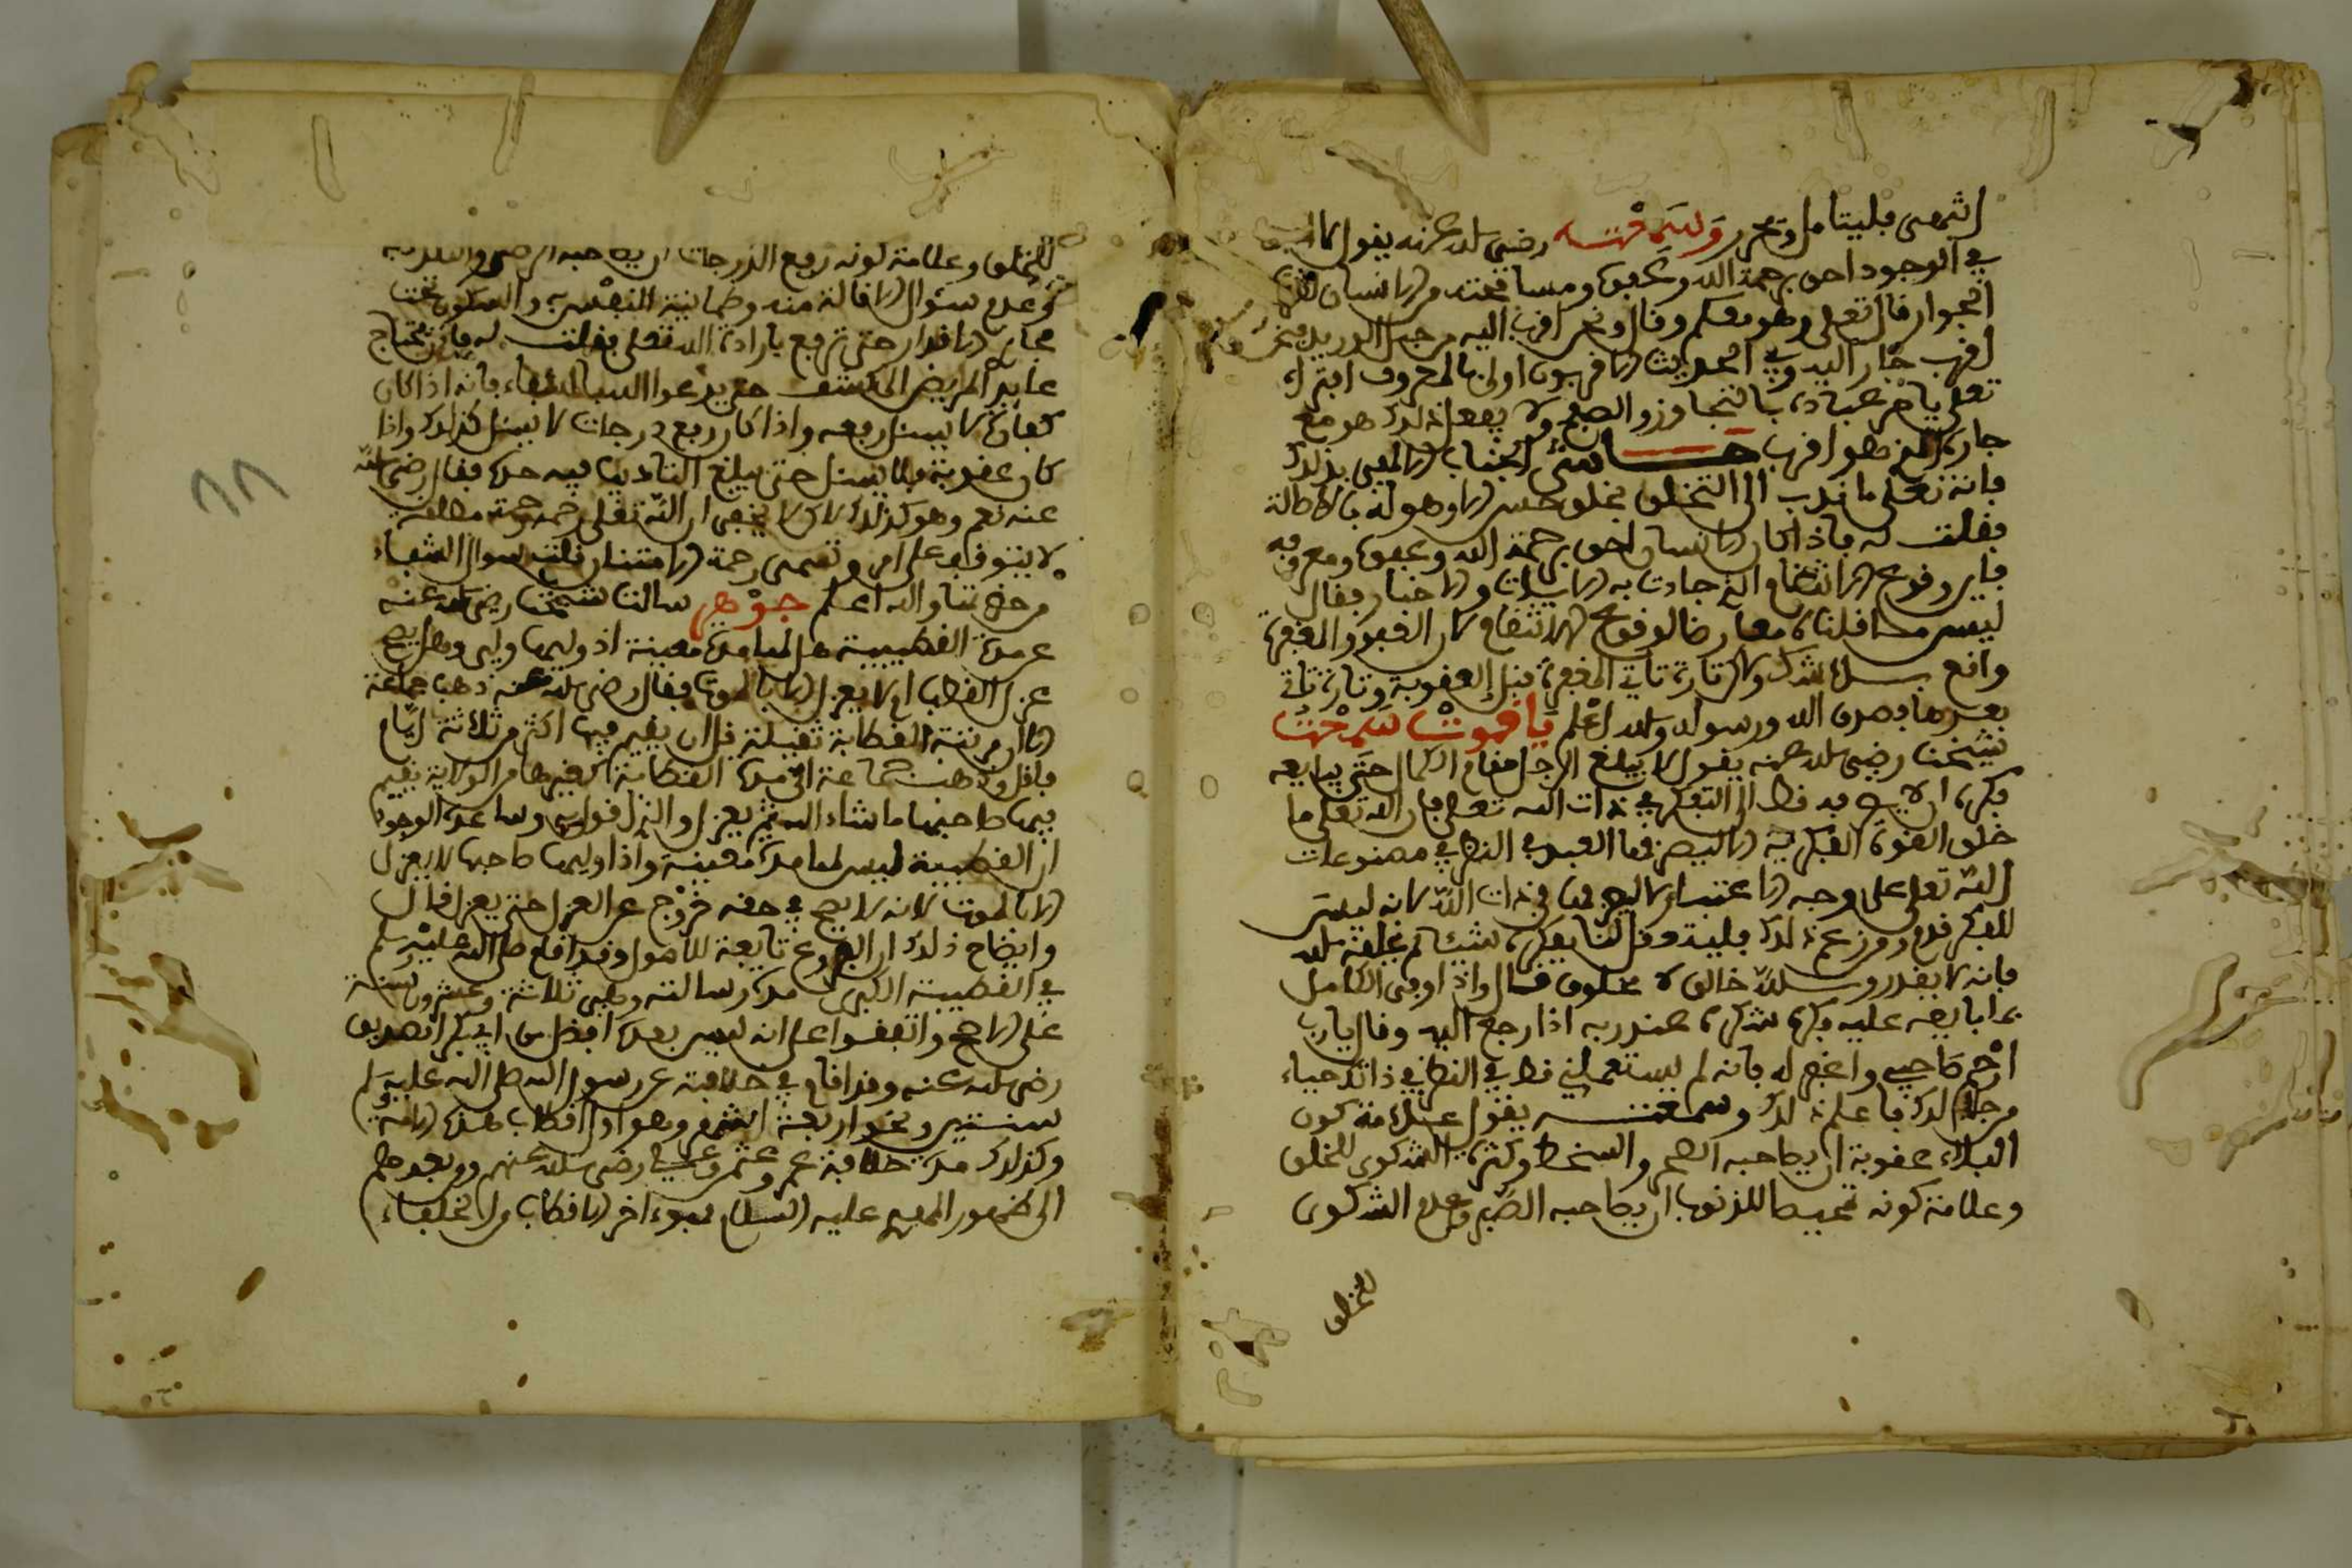 انتهى فليتامل ويحرر وسمعته رضي الله عنه يقول ما
في الوجود احق برحمة الله وعفوه ومسامحته من الانسان
الجوار قال تعلى وهو معكم وقال ونحن اقرب اليه من حبل الوريد فنحن
اقرب جار اليه وفي الحديث الاقربون اولى بالمعروف
تعلى يامر عباده بالتجاوز والصفح ولا يفعل ذلك هو مع
جاره الذي هو اقرب حاشى الجناب الالهي من ذلك
فانه تعلى ما ندب الى التخلق بخلق حسن الا وهو له بالاصالة
فقلت له فاذا كان الانسان احق برحمة الله وعفوه ومعروفه
فاين وقوع الانتقام الذي جاءت به الايات والاخبار فقال
ليس ما قلناه معارضا لوقوع الانتقام لان العفو والمغفرة
واقع بلا شك ولاكن تارة تاتي المغفرة قبل العقوبة وتارة تاتي
بعدها فصدق الله ورسوله والله اعلم ياقوت سمعت
شيخنا رضي الله عنه يقول لا يبلغ الرجل مقام الكمال حتى يبايعه
فكره ان لا يصرفه قط الى التفكر في ذات الله تعلى فان الله تعلى ما
خلق القوة الفكرية الا ليصرفها العبد في النظر في مصنوعات
الله تعلى على وجه الاعتبار لا ليصرفها في ذات الله لانه ليس
للفكر قدم ومن زعم ذلك فليته وقل لنا يفكر شيئا لم يخلقه الله
فانه لا يقدر والله خالق لا مخلوق قال واذا اوفى الكامل
بما بايعه عليه فكره شكره عند ربه اذا رجع اليه وقال يارب
ارحم صاحبي واغفر له فانه لم يستعملني قط في النظر في ذاتك حياء
من جلالك فاعلم ذلك وسمعته يقول علامة كون
البلاء عقوبة ان يصاحبه الضجر والسخط وكثرة الشكوى للخلق
وعلامة كونه تمحيصا للذنوب ان يصاحبه الصبر وعدم الشكوى
للخلق
للخلق وعلامة كونه رفع الدرجات ان يصاحبه الرضى والتلذذ به
وعدم سئوال الاقالة منه وطمانينة النفس به والسكون تحت
مجاري الاقدار حتى ترفع بارادة الله تعلى فقلت له فاذن يحتاج
عايد المريض الى كشف حتى يدعوا الله بالشفاء فانه اذا كان
كفارة لا يسئل رفعه واذا كان رفع درجات لا يسئل كذلك واذا
كان عقوبة فلا يسئل حتى يبلغ التاديب فيه حده فقال رضي الله
عنه نعم وهو كذلك لاكن لا يخفى ان الله تعلى رحمه رحمة مطلقة
لا يتوقف على امر وتسمى رحمة الامتنان فلتسال الشفاء
من حضرتها والله اعلم جوهر سالت شيخنا رضي الله عنه
عن مدة القطبية هل لها مدة معينة اذا وليها ولي وهل يصح
عزل القطب ام لا يعزل الا بالموت فقال رضي الله عنه ذهب جماعة
الى ان مرتبة القطابة ثقيلة قل ان يقيم فيها اكثر من ثلاثة ايام
فاقل وذهب جماعة الى مدة القطابة كغيرها من الولاية يقيم
فيها صاحبها ما شاء الله ثم يعزل والذي اقول به وساعده الوجود
ان القطبية ليس لها مدة معينة واذا وليها صاحبها لا يعزل
الا بالموت لانه لا يصح في حقه خروج عن العدل حتى يعزل قال
وايضاح ذلك ان الفروع تابعة للاصول وقد اقام صلى الله عليه وسلم
في القطبية الكبرى مدة رسالته وهي ثلاثة وعشرون سنة
على الاصح واتفقوا على انه ليس بعده افضل من ابي بكر الصديق
رضي الله عنه وقد اقام في خلافته عن رسول الله صلى الله عليه وسلم
سنتين ونحو اربعة اشهر وهو اول اقطاب هذه الامة
وكذلك مدة خلافة عمر وعثمن وعلي رضي الله عنهم ومن بعدهم
الى ظهور المهدي عليه السلام فهو اخر الاقطاب من الخلفاء